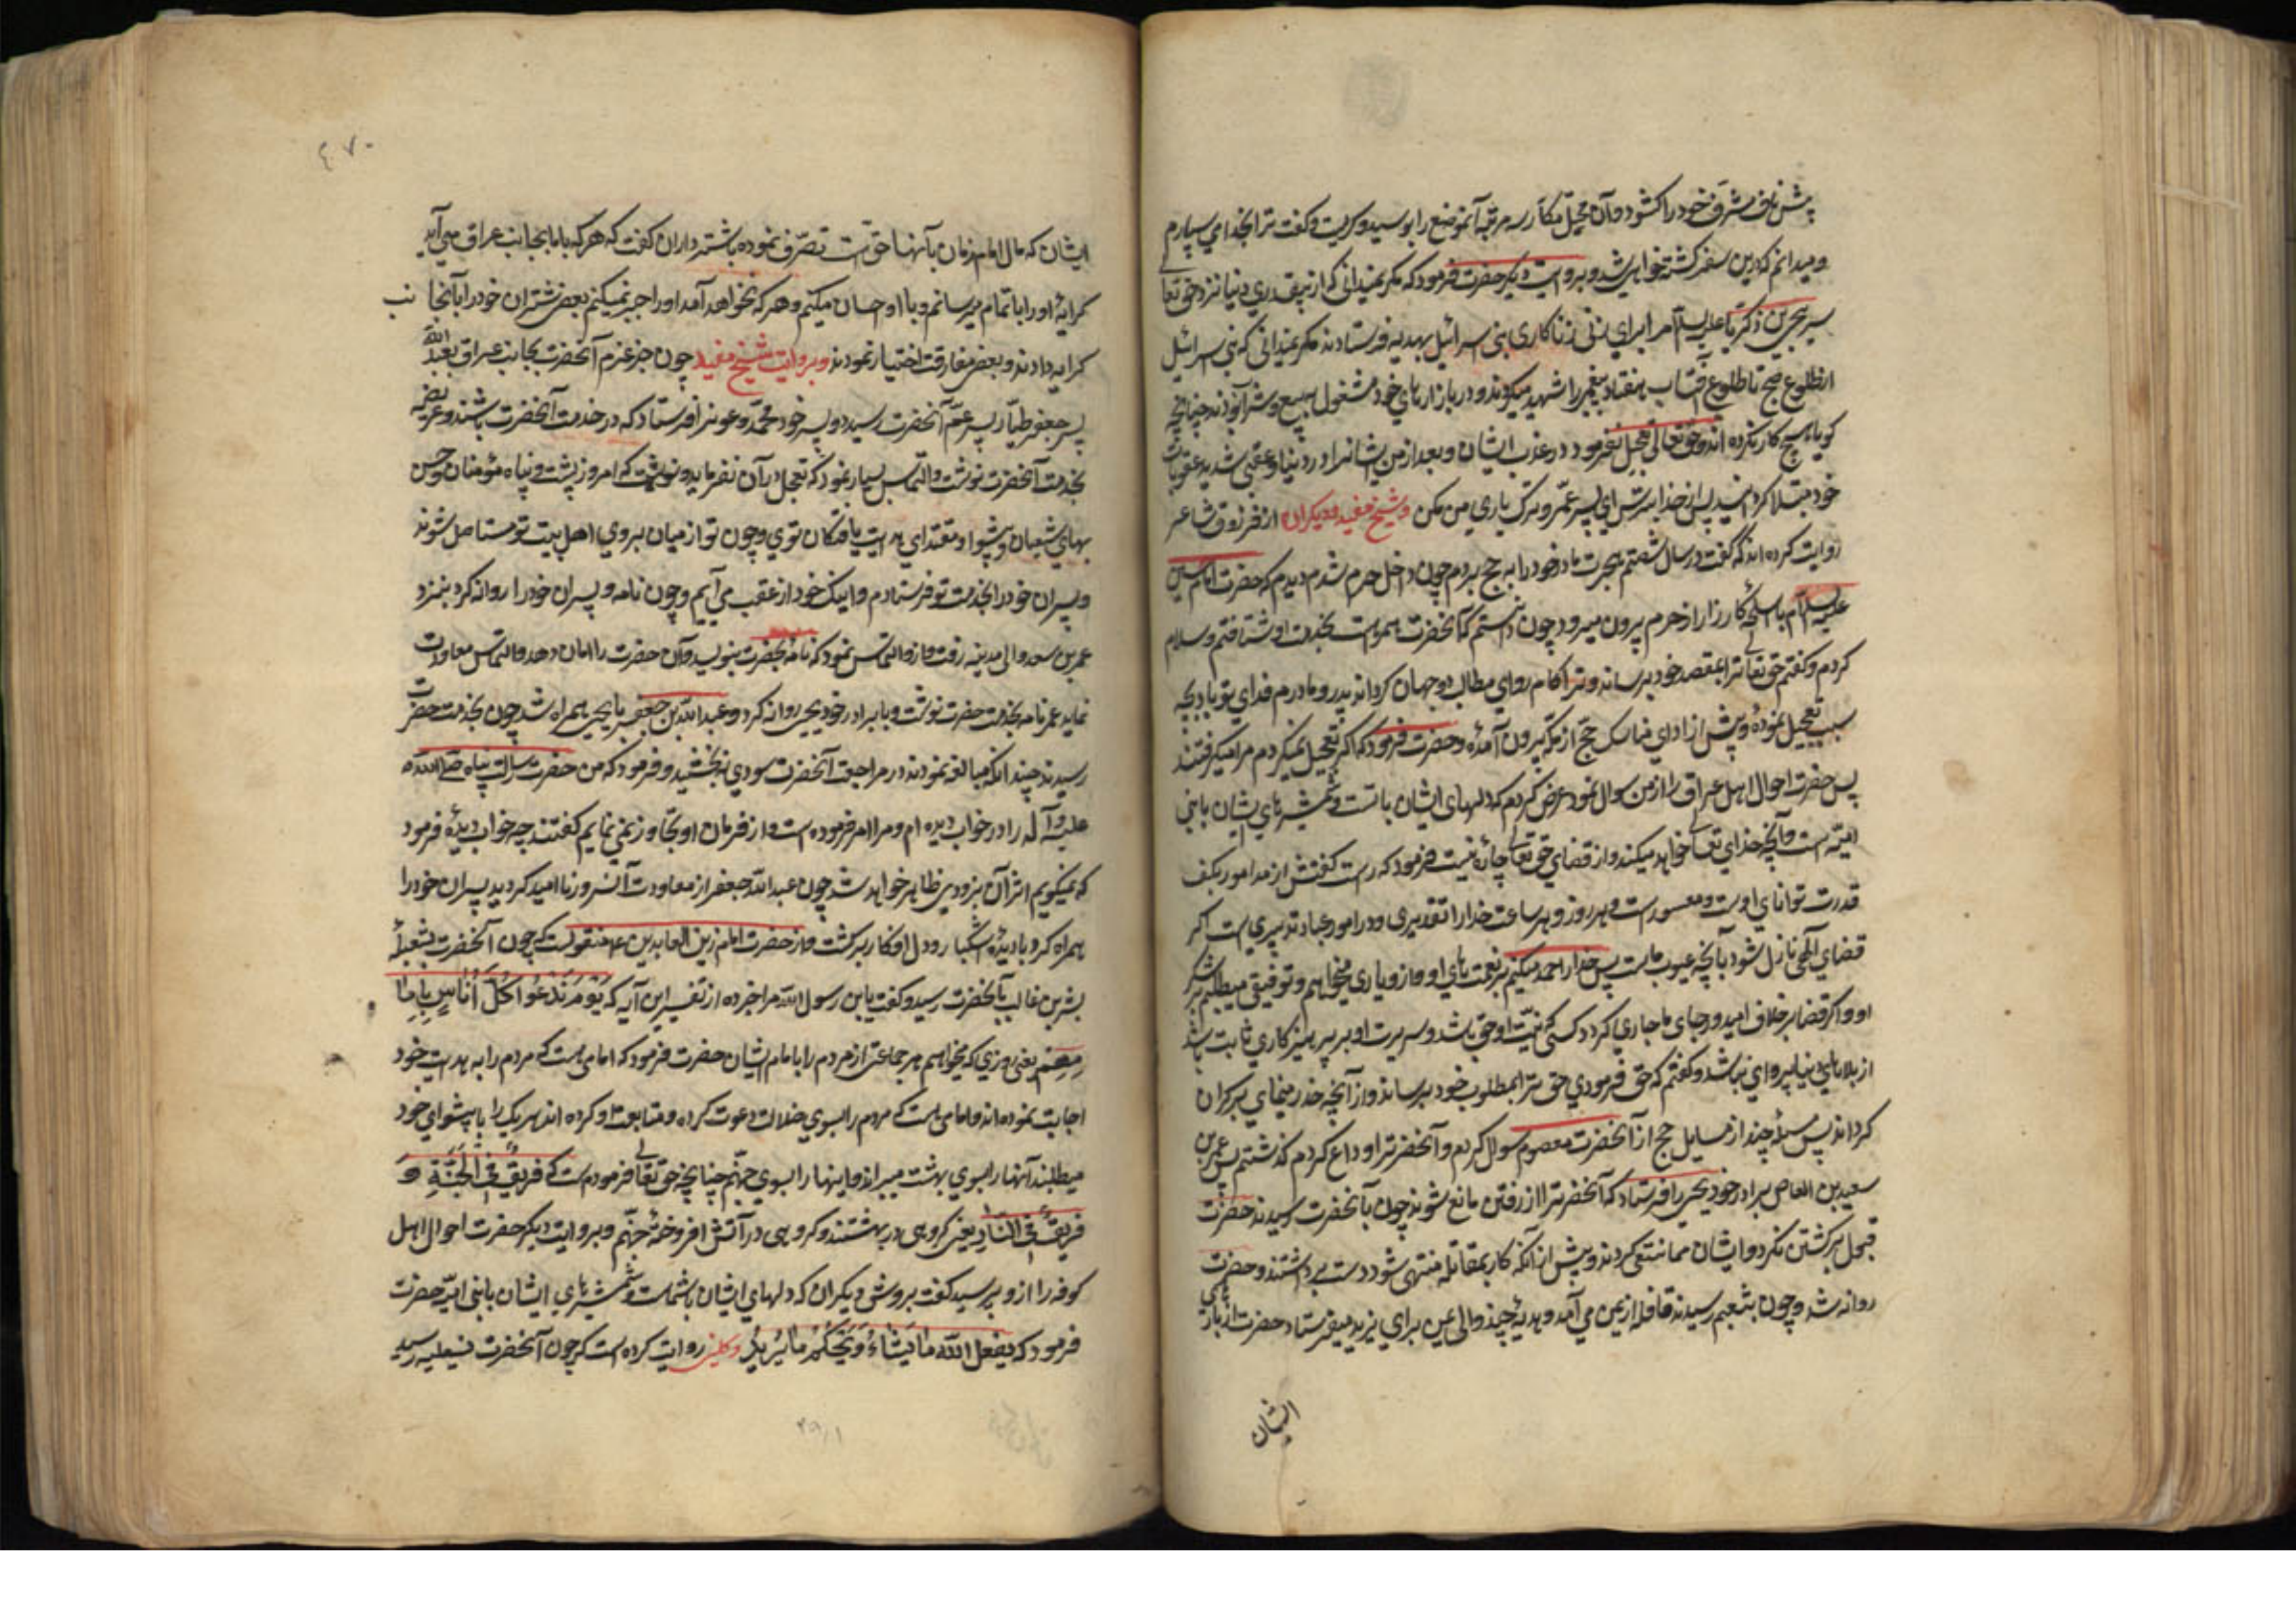 پیش ناف مشرف خود را گشود و آن محل مکرم را سه مرتبه آنموضع را بوسید و گریست و گفت ترا بخدا می سپارم
و میدانم که درین سفر کشته خواهی شد و بروایت دیگر حضرت فرمود که مگر نمیدانی که از بیقدری دنیا نزد حق تعا
سر یحیی بن زکریا علیه السلام را برای زنی زناکاری بنی اسرائیل بهدیه فرستادند مگر نمیدانی که بنی اسرائیل
از طلوع صبح تا طلوع آفتاب هفتاد پیغمبر را شهید میکردند و در بازارهای خود مشغول ببیع و شرا بودند چنانچه
گویا هیچ کار نکرده اند و حق تعالی تعجیل نفرمود در عذاب ایشان و بعد از من ایشانرا در دنیا و عقبی بشدید عقوبات
خود مبتلا گردانید پس از خدا بترس ای پسر عمر و ترک یاری من مکن و شیخ مفید و دیگران از فرزدق شاعر
روایت کرده اند که گفت در سال شصتم هجرت مادر خود را به حج بردم چون داخل حرم شدم دیدم که حضرت امام حسین
علیه السلام با اسلحه کارزار از حرم بیرون میرود چون دانستم که آنحضرت همواست بخدمت او شتافتم و سلام
کردم و گفتم حق تعالی ترا بمقصد خود برساند و ترا کام روای مطالب دو جهان گرداند پدر و مادرم فدای تو باد بچه
سبب تعجیل نموده و پیش از ادای مناسک حج از مکه بیرون آمده و حضرت فرمود که اگر تعجیل نمیکردم مرا میگرفتند
پس حضرت احوال اهل عراق را از من سوال نمود عرض کردم که دلهای ایشان با تست و شمشیرهای ایشان با بنی
امیه است و آنچه خدای تعالی خواهد میکند و از قضای حق تعالی چاره نیست فرمود که راست گفتی از مدار امور بکف
قدرت توانای اوست و هر روز و هر ساعت خدا را تقدیری و در امور عباد تدبیری است اگر
قضای الهی نازل شود بآنچه محبوب ماست پس خدا را حمد میکنیم بر نعمت های او و ازو یاری میخواهم و توفیق میطلبم بر شکر
او و اگر قضا بر خلاف امید و رجای ما جاری گردد کسی که نیت او حق باشد و سریرت او بر پرهیزکاری ثابت باشد
از بلاهای دنیا پروای نباشد و گفتم که حق فرمودی حق ترا بمطلوب خود برساند و از آنچه حذر مینمای بر کران
گرداند پس مسئله چند از مسایل حج از آنحضرت معصوم سوال کردم و آنحضرت را وداع کردم گذشتم پس عمر بن
سعید بن العاص برادر خود یحیی را فرستاد که آنحضرت را از رفتن مانع شوند چون بآنحضرت رسیدند حضرت
قبول برگشتن نکرد و ایشان ممانعتی کردند و پیش از آنکه کار بمقاتله منتهی شود دست برداشتند و حضرت
روانه شد و چون بتنعیم رسیدند قافله از یمن می آمد و هدیه چند والی یمن برای یزید میفرستاد حضرت از بار های
ایشان
٤٧٠
ایشان که مال امام زمان بآنها حق است تصرف نموده باشتر داران گفت که هر که با ما بجانب عراق می آید
کرایه او را با تمام میرسانم و با او احسان میکنم و هر که نخواهد آمد او را جبر نمیکنم بعض شتران خود را بآنجانب
کرایه دادند و بعض مفارقت اختیار نمودند و بروایت شیخ مفید چون خبر عزم آنحضرت بجانب عراق بعبد الله
پسر جعفر طیار پسر عم آنحضرت رسید دو پسر خود محمد و عون را فرستاد که در خدمت آنحضرت باشند و عریضه
بخدمت آنحضرت نوشت و التماس بسیار نمود که تعجیل در آن نفرماید و نوشت که امروز پشت و پناه مؤمنان و حسن
بهای شیعیان و پیشوا و مقتدای هدایت یافتگان توی و چون تو از میان بروی اهل بیت تو مستاصل شوند
و پسران خود را بخدمت تو فرستادم و اینک خود از عقب می آیم و چون نامه و پسران خود را روانه کرد بنزد
عمر بن سعد والی مدینه رفت و ازو التماس نمود که نامه بحضرت بنویسد و آن حضرت را امان دهد و التماس معاودت
نماید عمر نامه بخدمت حضرت نوشت و با برادر خود یحیی روانه کرد و عبد الله بن جعفر با یحیی همراه شد چون بخدمت حضرت
رسیدند چندانکه مبالغه نمودند در مراجعت آنحضرت سودی نبخشید و فرمود که من حضرت رسالت پناه صلی الله
علیه و آله را در خواب دیده ام و مرا امر فرموده است و از فرمان او تجاوز نمی نمایم گفتند چه خواب دیدهٔ فرمود
که نمیگویم اثر آن بزودی ظاهر خواهد شد چون عبد الله جعفر از معاودت آنسرور ناامید گردید پسران خود را
همراه کرد با دیدهٔ اشکبار و دل افکار برگشت و از حضرت امام زین العابدین ع منقولست که چون آنحضرت بثعلبه
بشر بن غالب بآنحضرت رسید و گفت یابن رسول الله مرا خبر ده از تفسیر این آیه که یَوْمَ نَدْعُوا كُلَّ أُنَاسٍ بِإِمَا
مِهِم یعنی روزی که میخوانیم هر جماعتی از مردم را با امام ایشان حضرت فرمود که امامی است که مردم را به هدایت خود
اجابت نموده اند و امامی است که مردم را بسوی ضلالت دعوت کرده و متابعت او کرده اند هر یک را با پیشوای خود
میطلبند آنها را بسوی بهشت میبرند و اینها را بسوی جهنم چنانچه حق تعالی فرموده است که فَرِيقٌ فِي الْجَنَّةِ وَ
فَرِيقٌ فِي النَّارِ یعنی گروهی در بهشتند و گروهی در آتش افروختهٔ جهنم و بروایت دیگر حضرت احوال اهل
کوفه را از و پرسید گفت بروش دیگران که دلهای ایشان با شماست و شمشیرهای ایشان با بنی امیه حضرت
فرمود که یفعل الله ما یَشَاءُ وَیَحْكُمُ مَا یُرِیدُ و کلینی روایت کرده است که چون آنحضرت بثعلبیه رسید